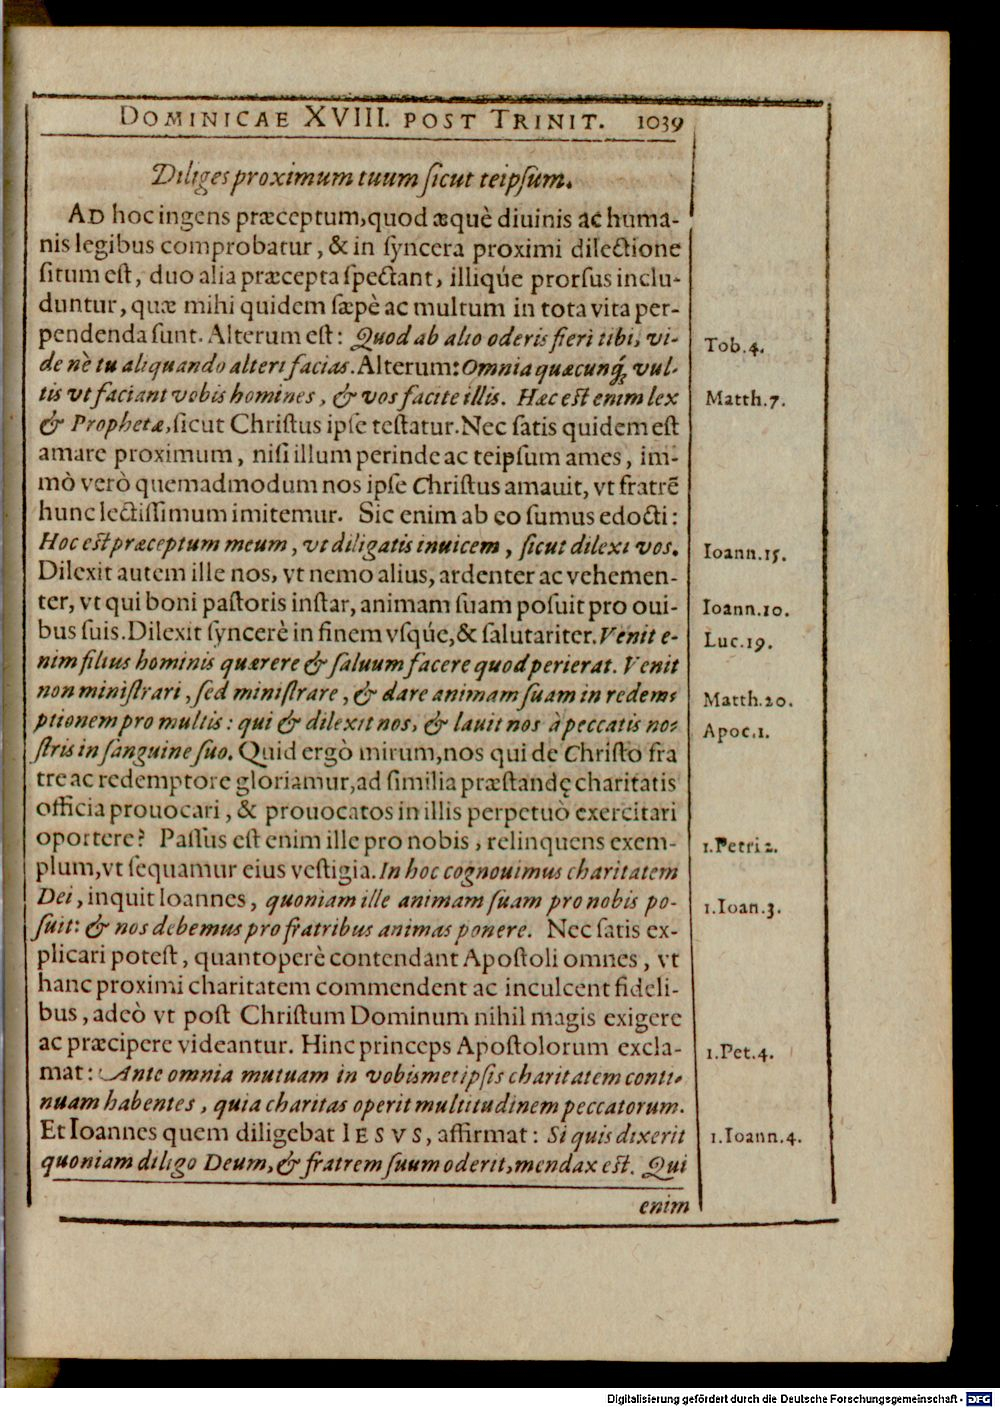 DOMINICAE XVIII. POST TRINIT. 1039
Diliges proximum tuum ſicut teipſum.
AD hoc ingens præceptum, quod æquè diuinis ac huma-
nis legibus comprobatur, & in ſyncera proximi dilectione
ſitum eſt, duo alia præcepta ſpectant, illiqúe prorſus inclu-
duntur, quæ mihi quidem ſæpè ac multum in tota vita per-
pendenda ſunt. Alterum eſt: Quod ab alio oderis fieri tibi, vi-
Tob.4.
de nè tu aliquando alteri facias. Alterum: Omnia quæcunq́; vul-
tis vt faciant vobis homines, & vos facite illis. Hæc eſt enim lex
Matth.7.
& Prophetæ, ſicut Chriſtus ipſe teſtatur. Nec ſatis quidem eſt
amare proximum, niſi illum perinde ac teipſum ames, im-
mò verò quemadmodum nos ipſe Chriſtus amauit, vt fratrē
hunc lectiſſimum imitemur. Sic enim ab eo ſumus edocti:
Hoc eſt præceptum meum, vt diligatis inuicem, ſicut dilexi vos.
Ioann.15.
Dilexit autem ille nos, vt nemo alius, ardenter ac vehemen-
ter, vt qui boni paſtoris inſtar, animam ſuam poſuit pro oui-
Ioann.10.
bus ſuis. Dilexit ſyncerè in finem vſqúe, & ſalutariter. Venit e-
Luc.19.
nim filius hominis quærere & ſaluum facere quod perierat. Venit
non miniſtrari, ſed miniſtrare, & dare animam ſuam in redem-
Matth.20.
ptionem pro multis: qui & dilexit nos, & lauit nos à peccatis no-
Apoc.1.
ſtris in ſanguine ſuo. Quid ergò mirum, nos qui de Chriſto fra
tre ac redemptore gloriamur, ad ſimilia præſtandę charitatis
officia prouocari, & prouocatos in illis perpetuò exercitari
oportere? Paſſus eſt enim ille pro nobis, relinquens exem-
1.Petri 2.
plum, vt ſequamur eius veſtigia. In hoc cognouimus charitatem
Dei, inquit Ioannes, quoniam ille animam ſuam pro nobis po-
1.Ioan.3.
ſuit: & nos debemus pro fratribus animas ponere. Nec ſatis ex-
plicari poteſt, quantoperè contendant Apoſtoli omnes, vt
hanc proximi charitatem commendent ac inculcent fideli-
bus, adeò vt poſt Chriſtum Dominum nihil magis exigere
ac præcipere videantur. Hinc princeps Apoſtolorum excla-
1.Pet.4.
mat: Ante omnia mutuam in vobismetipſis charitatem conti-
nuam habentes, quia charitas operit multitudinem peccatorum.
Et Ioannes quem diligebat IESVS, affirmat: Si quis dixerit
1.Ioann.4.
quoniam diligo Deum, & fratrem ſuum oderit, mendax eſt. Qui
enim
Digitalisierung gefördert durch die Deutsche Forschungsgemeinschaft - DFG